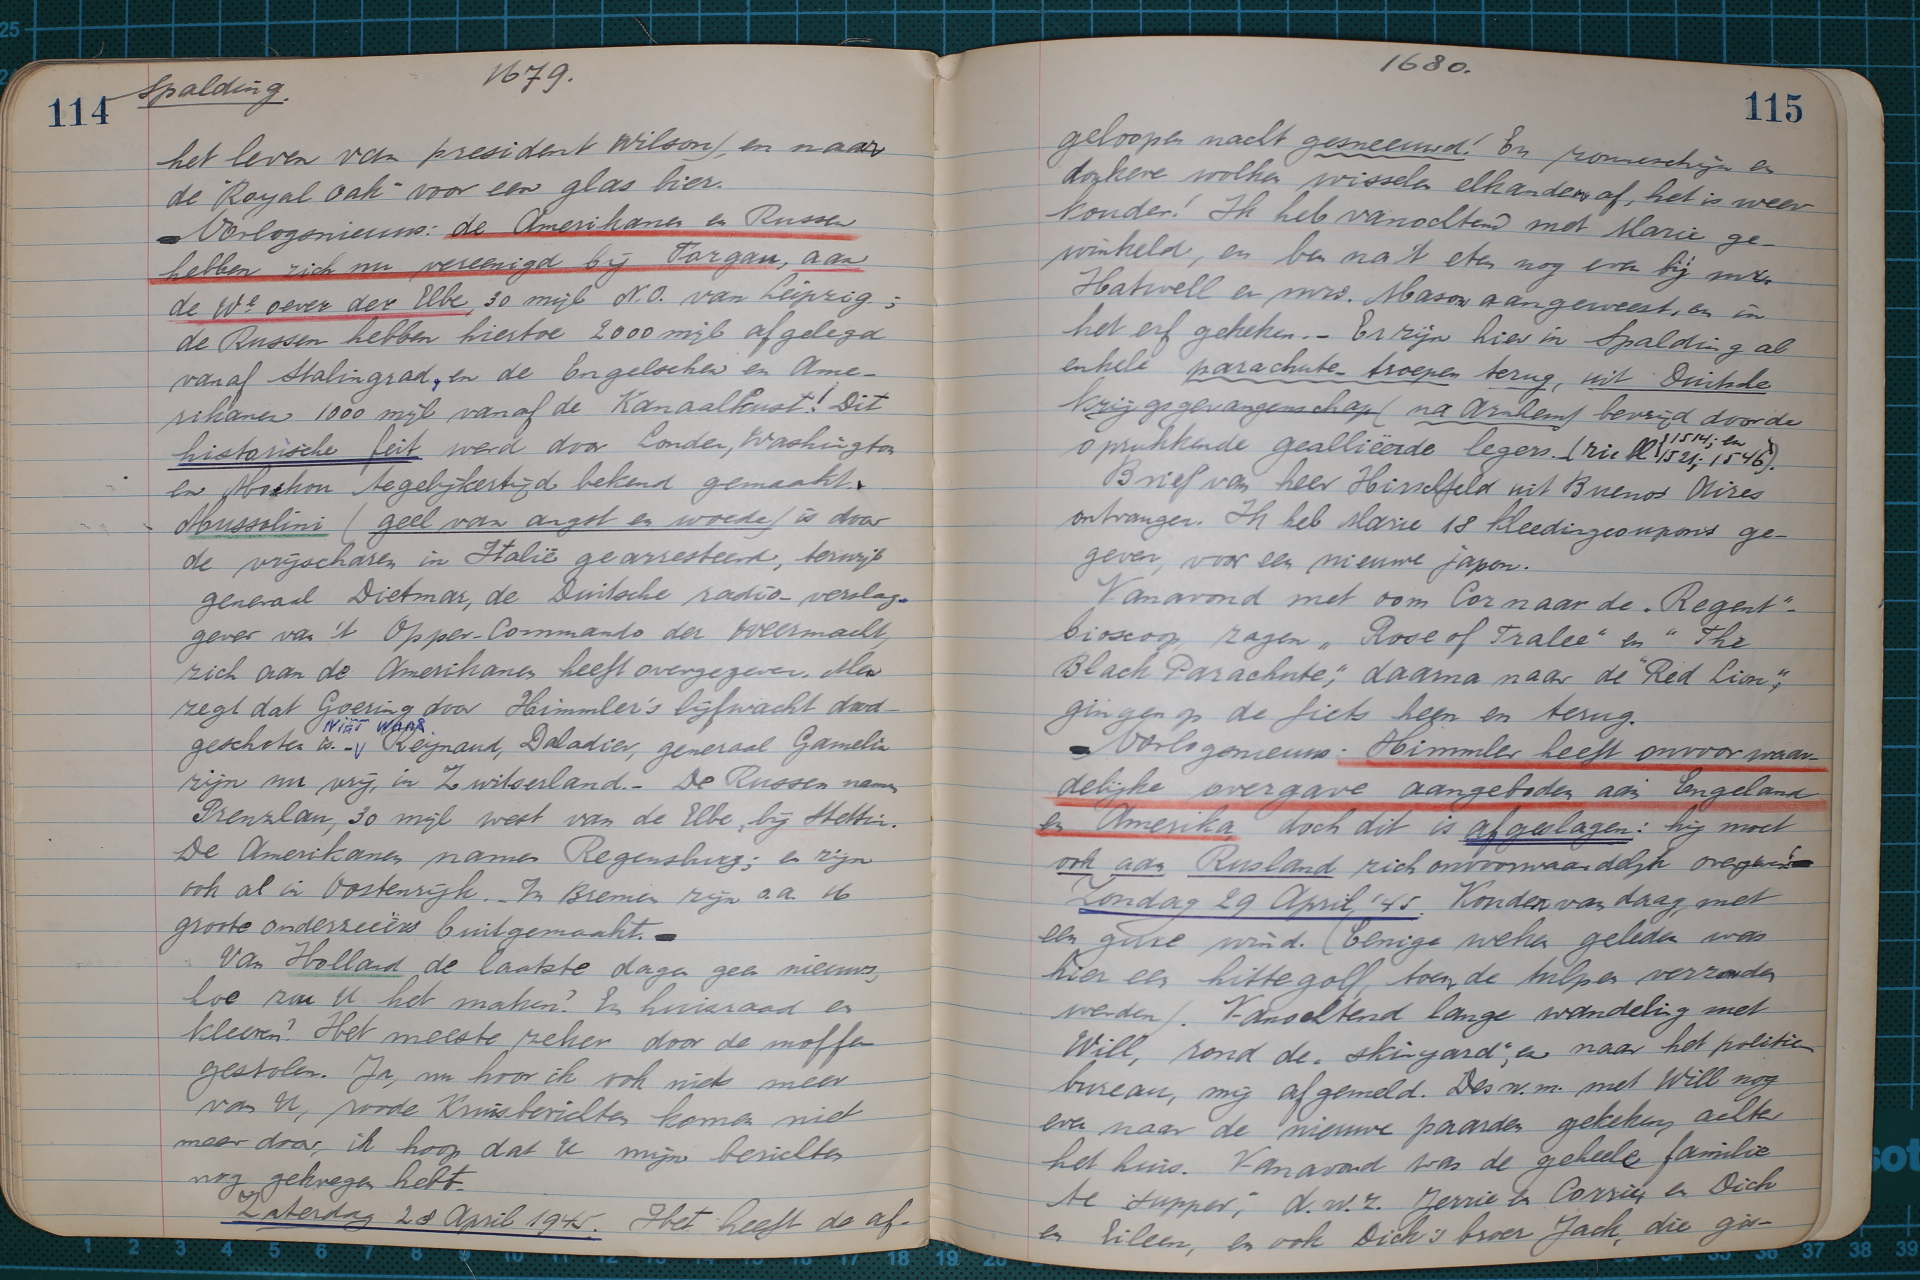 114
Spalding.
1679.
het leven van president Wilson), en naar
de "Royal Oak" voor een glas bier.
Oorlogsnieuws: de Amerikanen en Russen
hebben zich nu vereenigd bij Torgau, aan
de We oever der Elbe, 30 mijl N.O. van Leipzig;
de Russen hebben hiertoe 2000 mijl afgelegd
vanaf Stalingrad, en de Engelschen en Ame-
rikanen 1000 mijl vanaf de Kanaalkust! Dit
historische feit werd door Londen, Washington
en Moskou tegelijkertijd bekend gemaakt.
Mussolini (geel van angst en woede) is door
de vrijscharen in Italië gearresteerd, terwijl
generaal Dietmar, de Duitsche radio-verslag-
gever van 't Opper-Commando der Weermacht,
zich aan de Amerikanen heeft overgegeven. Men
zegt dat Goering door Himmler's lijfwacht dood-
NIET WAAR.
geschoten is. - Reynaud, Daladier, generaal Gamelin
zijn nu vrij, in Zwitserland. - De Russen namen
Prenzlau, 30 mijl west van de Elbe, bij Stettin.
De Amerikanen namen Regensburg; en zijn
ook al in Oostenrijk. - In Bremen zijn a.a. 16
groote onderzeeërs buitgemaakt. -
Van Holland de laatste dagen geen nieuws,
hoe zou U het maken? En huisraad en
kleeren? Het meeste zeker door de moffen
gestolen. Ja, nu hoor ik ook niets meer
van U, roode Kruisberichten komen niet
meer door, ik hoop dat U mijn berichten
nog gekregen hebt.
Zaterdag 28 April 1945. Het heeft de af-
1680.
115
geloopen nacht gesneeuwd! En zonneschijn en
donkere wolken wisselen elkander af, het is weer
kouder! Ik heb vanochtend met Marie ge-
winkeld, en ben na 't eten nog even bij mrs.
Hatwell en mrs. Mason aangeweest, en in
het erf gekeken. - Er zijn hier in Spalding al
enkele parachute-troepen terug, uit Duitsche
krijgsgevangenschap (na Arnhem) bevrijd door de
oprukkende geallieerde legers. (zie 1514; en
1521; 1546).
Brief van heer Hirschfeld uit Buenos Aires
ontvangen. Ik heb Marie 18 kleedingcoupons ge-
geven, voor een nieuwe japon.
Vanavond met oom Cor naar de "Regent"-
bioscoop, zagen "Rose of Tralee" en "The
Black Parachute", daarna naar de "Red Lion",
gingen op de fiets heen en terug.
Oorlogsnieuws: Himmler heeft onvoorwaar-
delijke overgave aangeboden aan Engeland
en Amerika, doch dit is afgeslagen: hij moet
ook aan Rusland zich onvoorwaardelijk overgeven!
Zondag 29 April '45. Kouder vandaag, met
een gure wind. (Eenige weken geleden was
hier een hittegolf, toen de tulpen verzonden
werden). Vanochtend lange wandeling met
Will, rond de "shipyard", en naar het politie-
bureau, mij afgemeld. Des n.m. met Will nog
even naar de nieuwe paarden gekeken, achter
het huis. Vanavond was de geheele familie
te supper; d.w.z. Jerrie en Corrie, en Dick
en Eileen, en ook Dick's broer Jack, die gis-